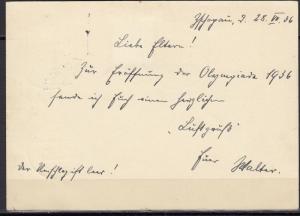 Zschopau, d. 28. VII 36
Liebe Eltern!
Zur Eröffnung der Olympiade 1936
sende ich Euch einen herzlichen
"Luftgruß"
Euer Walter.
Der Umschlag ist leer!